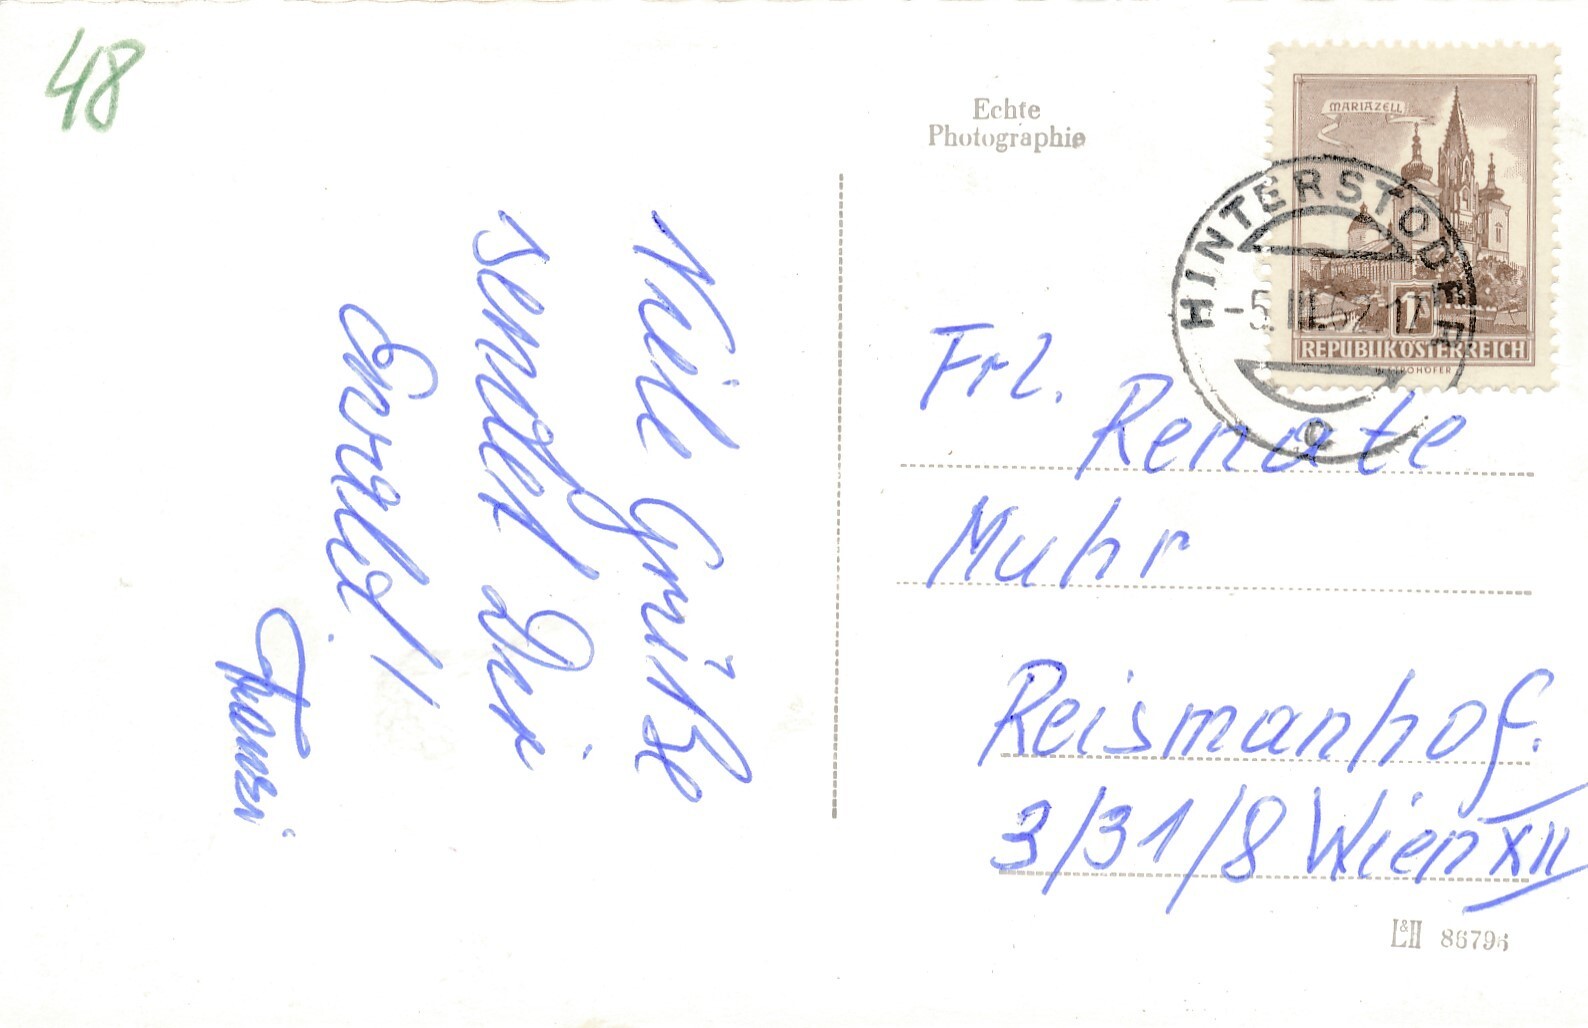 48
Viele Grüße
sendet Dir
Ewald!
Echte
Photographie
MARIAZELL
HINTERSTODER
-5.III.62.17
1
REPUBLIK ÖSTERREICH
Frl.
Renate
Muhr
Reismanhof.
3/31/8 Wien XII
L&H 86796